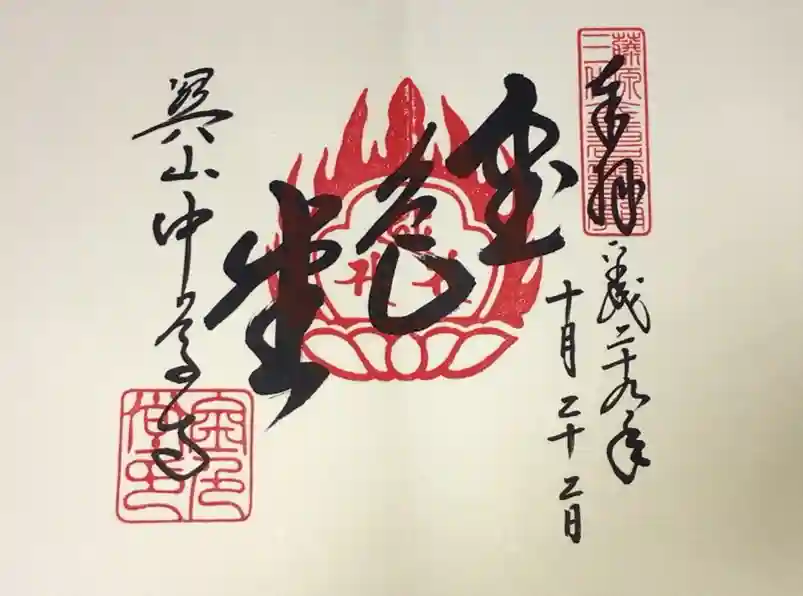 奉拝 平成二十九年
十月二十二日
金色堂
関山中尊寺
金色堂印